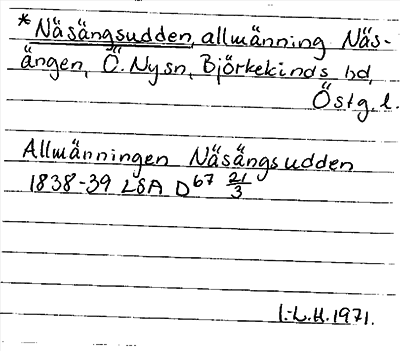 *Näsängsudden, allmänning Näs-
ängen, Ö. Nysn, Björkekinds hd,
Östg. l.
Allmänningen Näsängsudden
1838-39 LSA D67 21/3
I.-L.H. 1971.